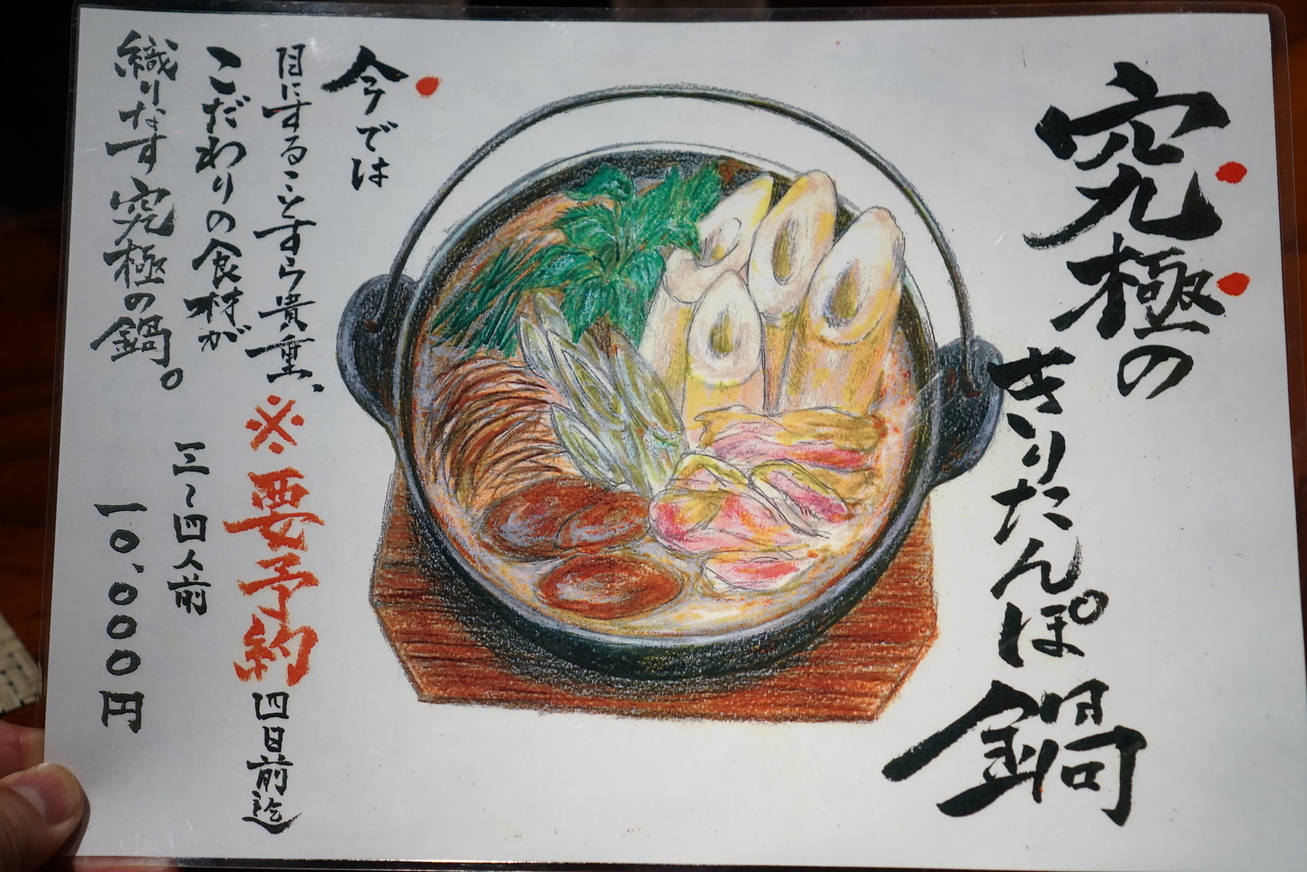 究極の
きりたんぽ
鍋
今では
目にすることすら貴重、
こだわりの食材が
織りなす究極の鍋。
※要予約
四日前迄
三～四人前
一〇、〇〇〇円